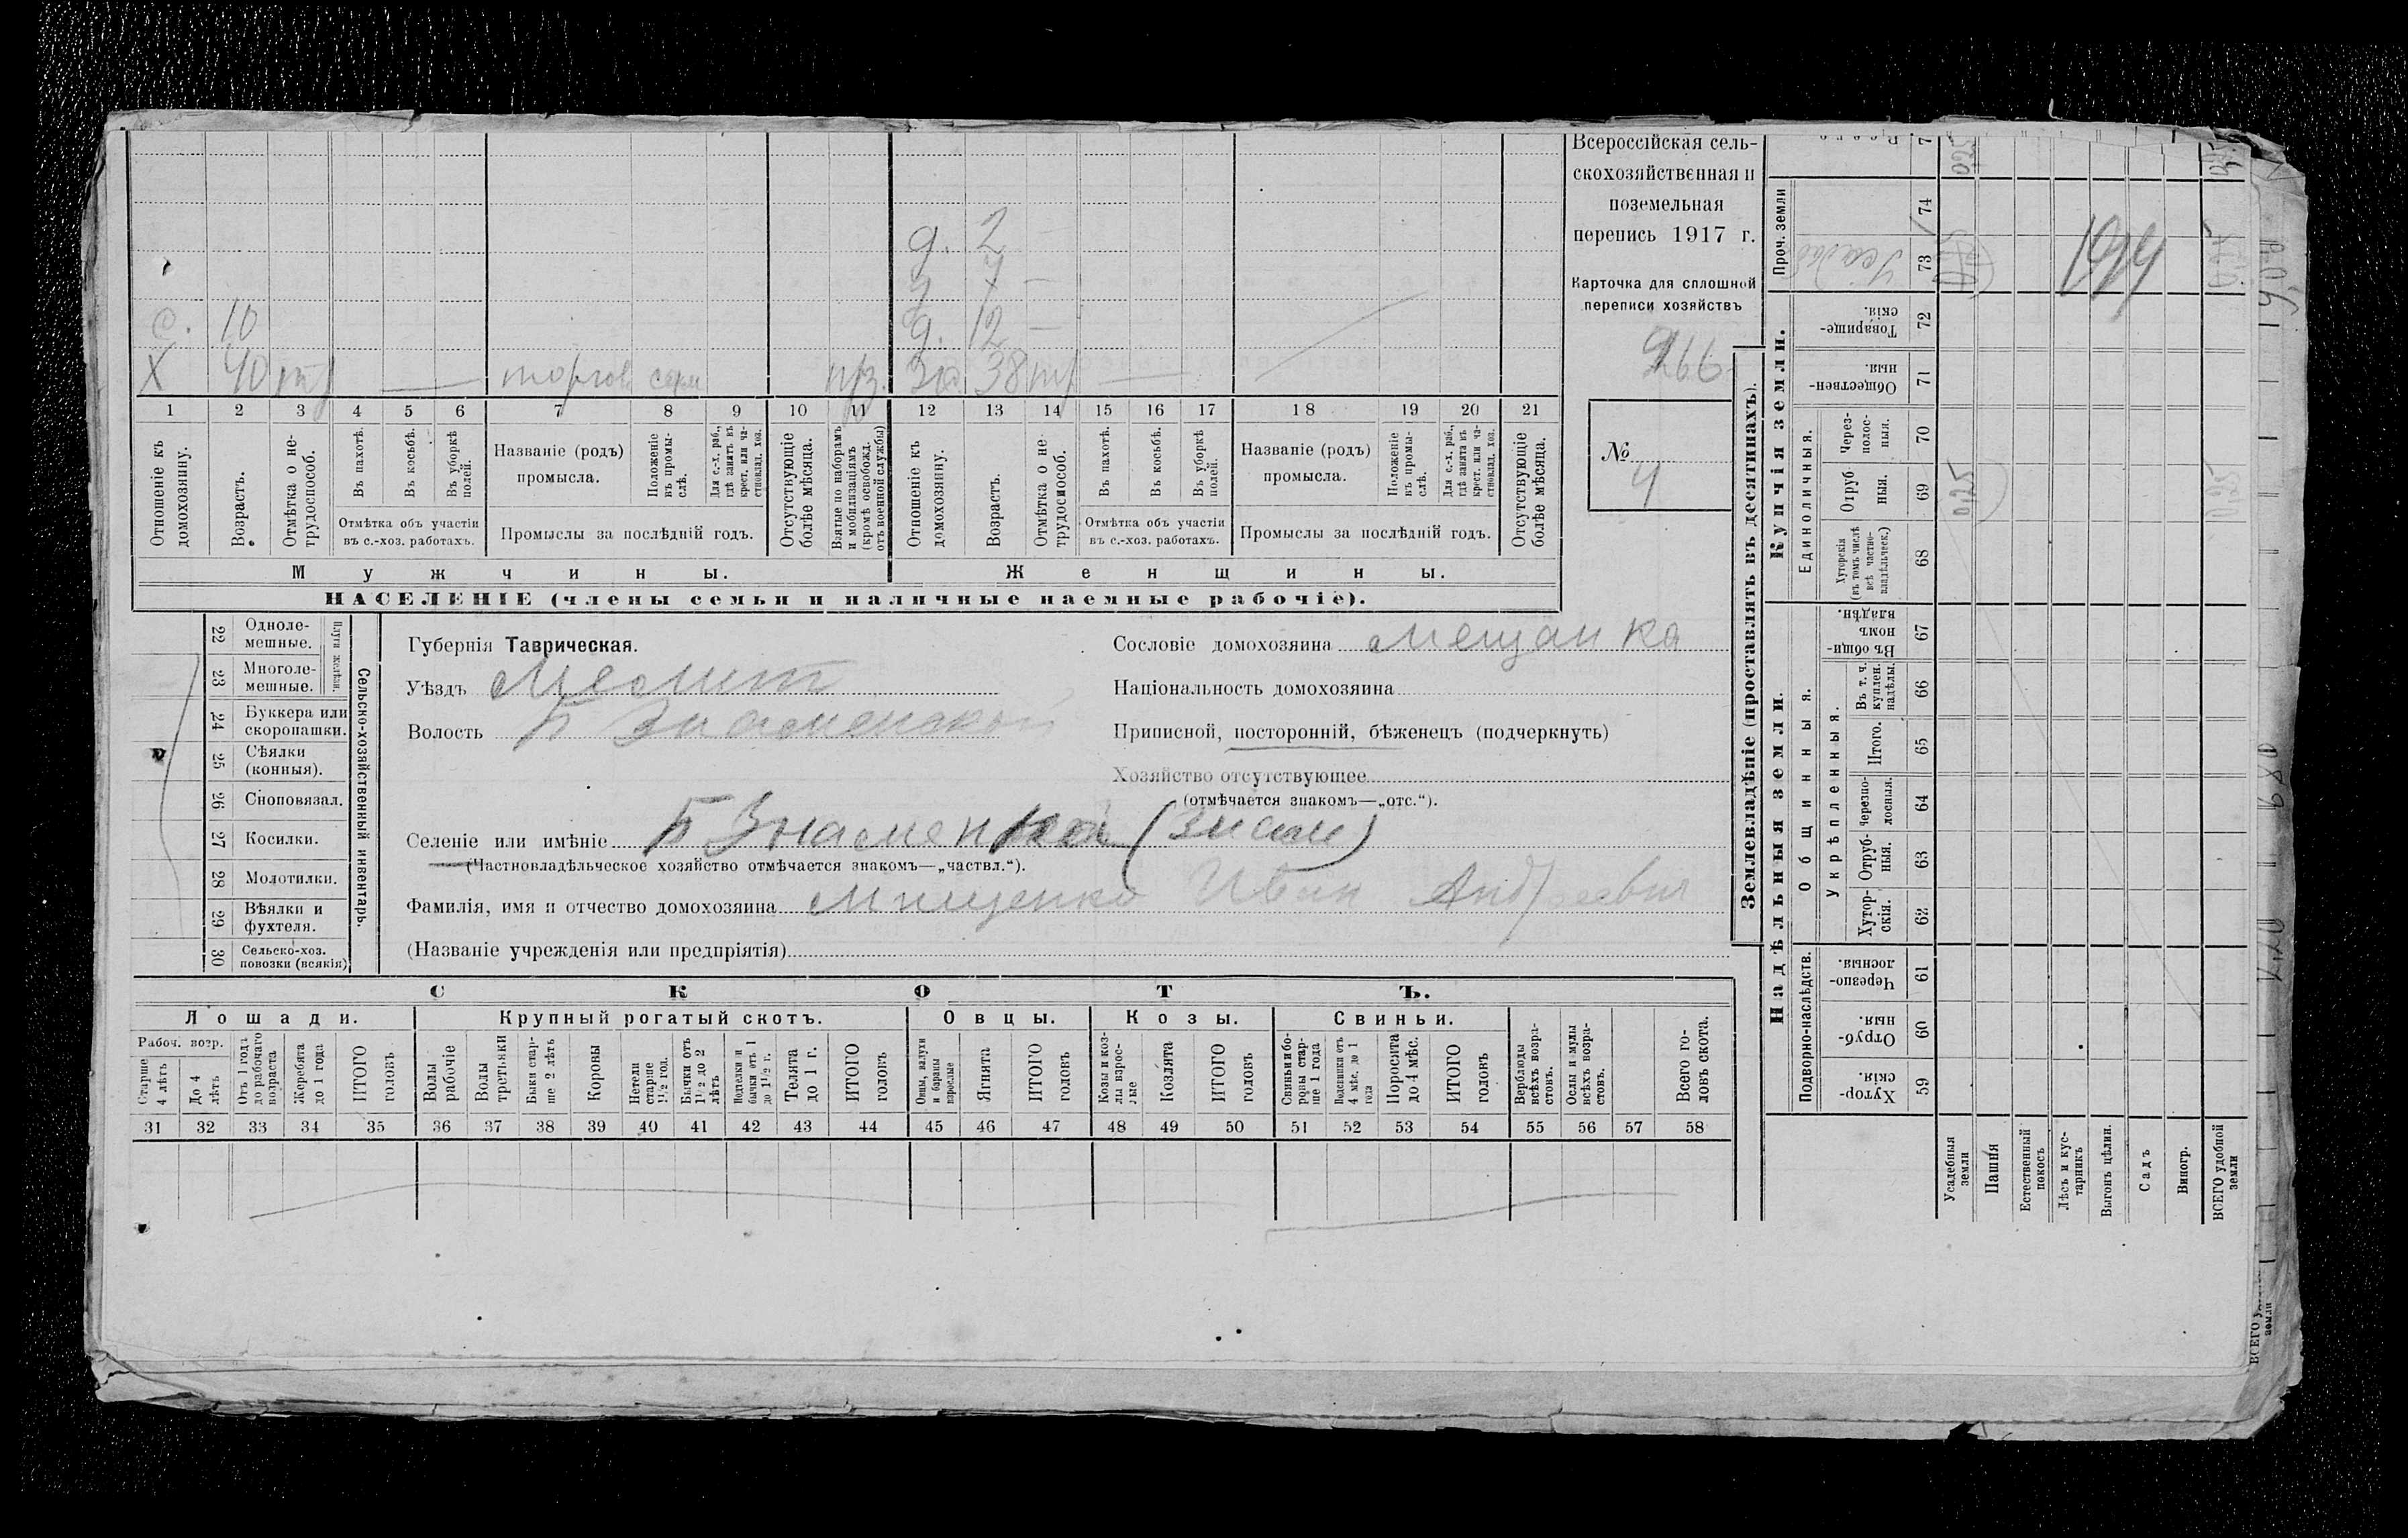 Всероссійская сель-
скохозяйственная и
поземельная
перепись 1917 г.
Карточка для сплошной
переписи хозяйствъ
266
№
4
д. 2
д 7 —
с. 10
д. 12 —
Х 40 тр — торгов прз. 38 тр —
1 2 3 4 5 6 7 8 9 10 11 12 13 14 15 16 17 18 19 20 21
Отношеніе къ домохозяину.
Возрастъ.
Отмѣтка о не-трудоспособ.
Въ пахотѣ.
Въ косьбѣ.
Въ уборкѣ полей.
Отмѣтка объ участіи
въ с.-хоз. работахъ.
Названіе (родъ)
промысла.
Положеніе въ промы-слѣ.
Для с.-х. раб., гдѣ занятъ въ крест. или ча-стновлад. хоз.
Промыслы за послѣдній годъ.
Отсутствующіе болѣе мѣсяца.
Взятые по наборамъ и мобилизаціямъ (кромѣ освобожд. отъ военной службы)
Отношеніе къ домохозяину.
Возрастъ.
Отмѣтка о не-трудоспособ.
Въ пахотѣ.
Въ косьбѣ.
Въ уборкѣ полей.
Отмѣтка объ участіи
въ с.-хоз. работахъ.
Названіе (родъ)
промысла.
Положеніе въ промы-слѣ.
Для с.-х. раб., гдѣ занята въ крест. или ча-стновлад. хоз.
Промыслы за послѣдній годъ.
Отсутствующіе болѣе мѣсяца.
Мужчины.
Женщины.
НАСЕЛЕНІЕ (члены семьи и наличные наемные рабочіе).
22 Одноле-мешные.
23 Многоле-мешные.
Плуги желѣзн.
24 Буккера или скоропашки.
25 Сѣялки (конныя).
26 Сноповязал.
27 Косилки.
28 Молотилки.
29 Вѣялки и фухтеля.
30 Сельско-хоз. повозки (всякія)
Сельско-хозяйственный инвентарь.
Губернія Таврическая.
Уѣздъ Мелит
Волость Б Знаменской
Селеніе или имѣніе Б Знаменка (Знам)
(Частновладѣльческое хозяйство отмѣчается знакомъ—„частвл.“).
Фамилія, имя и отчество домохозяина Мищенко Иван Андреевич
(Названіе учрежденія или предпріятія)
Сословіе домохозяина мещанка
Національность домохозяина
Приписной, посторонній, бѣженецъ (подчеркнуть)
Хозяйство отсутствующее
(отмѣчается знакомъ—„отс.“).
СКОТЪ.
Лошади.
Крупный рогатый скотъ.
Овцы.
Козы.
Свиньи.
Рабоч. возр.
Старше 4 лѣтъ
До 4 лѣтъ
Отъ 1 года до рабочаго возраста
Жеребята до 1 года
ИТОГО головъ
Волы рабочіе
Волы третьяки
Быки стар-ше 2 лѣтъ
Коровы
Нетели старше 1½ год.
Бычки отъ 1½ до 2 лѣтъ
Подтелки и бычки отъ 1 до 1½ г.
Телята до 1 г.
ИТОГО головъ
Овцы, валухи и бараны взрослые
Ягнята
ИТОГО головъ
Козы и коз-лы взрос-лые
Козлята
ИТОГО головъ
Свиньи и бо-ровы стар-ше 1 года
Подсвинки отъ 4 мѣс. до 1 года
Поросята до 4 мѣс.
ИТОГО головъ
Верблюды всѣхъ возра-стовъ.
Ослы и мулы всѣхъ возра-стовъ.
Всего го-ловъ скота.
31 32 33 34 35 36 37 38 39 40 41 42 43 44 45 46 47 48 49 50 51 52 53 54 55 56 57 58
Землевладѣніе (проставлять въ десятинахъ).
Надѣльныя земли.
Купчія земли.
Проч. земли
Подворно-наслѣдств.
Общинныя.
Укрѣпленныя.
Единоличныя.
Хутор-скія. 59
Отруб-ныя. 60
Черезпо-лосныя. 61
Хутор-скія. 62
Отруб-ныя. 63
Черезпо-лосныя. 64
Итого. 65
Въ т. ч. куплен. надѣлы. 66
Въ общи-номъ владѣн. 67
Хуторскія (въ томъ числѣ всѣ частно-владѣльческ.) 68
Отруб-ныя. 69
Через-полос-ныя. 70
Обществен-ныя. 71
Товарище-скія. 72
Усадьб 73
74
Усадебныя земли
Пашня
Естественный покосъ
Лѣсъ и кус-тарникъ
Выгонъ цѣлин.
Садъ
Виногр.
ВСЕГО удобной земли
0,25
0,25
0,25
1914